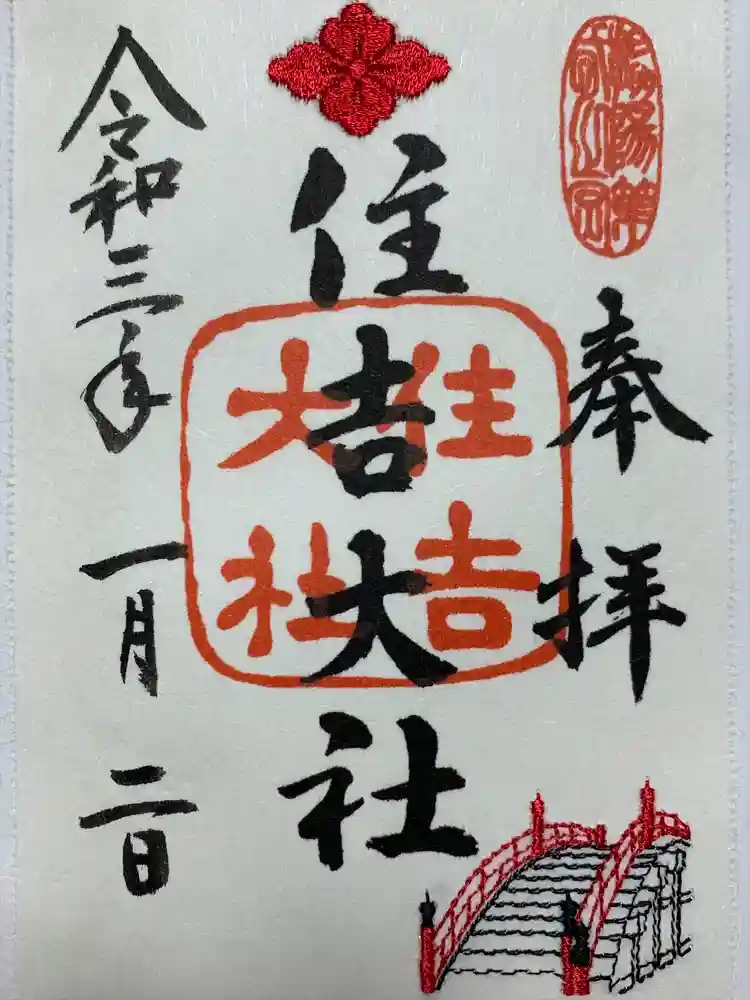 奉拝
住吉大社
住吉
大社
令和三年
一月
二日